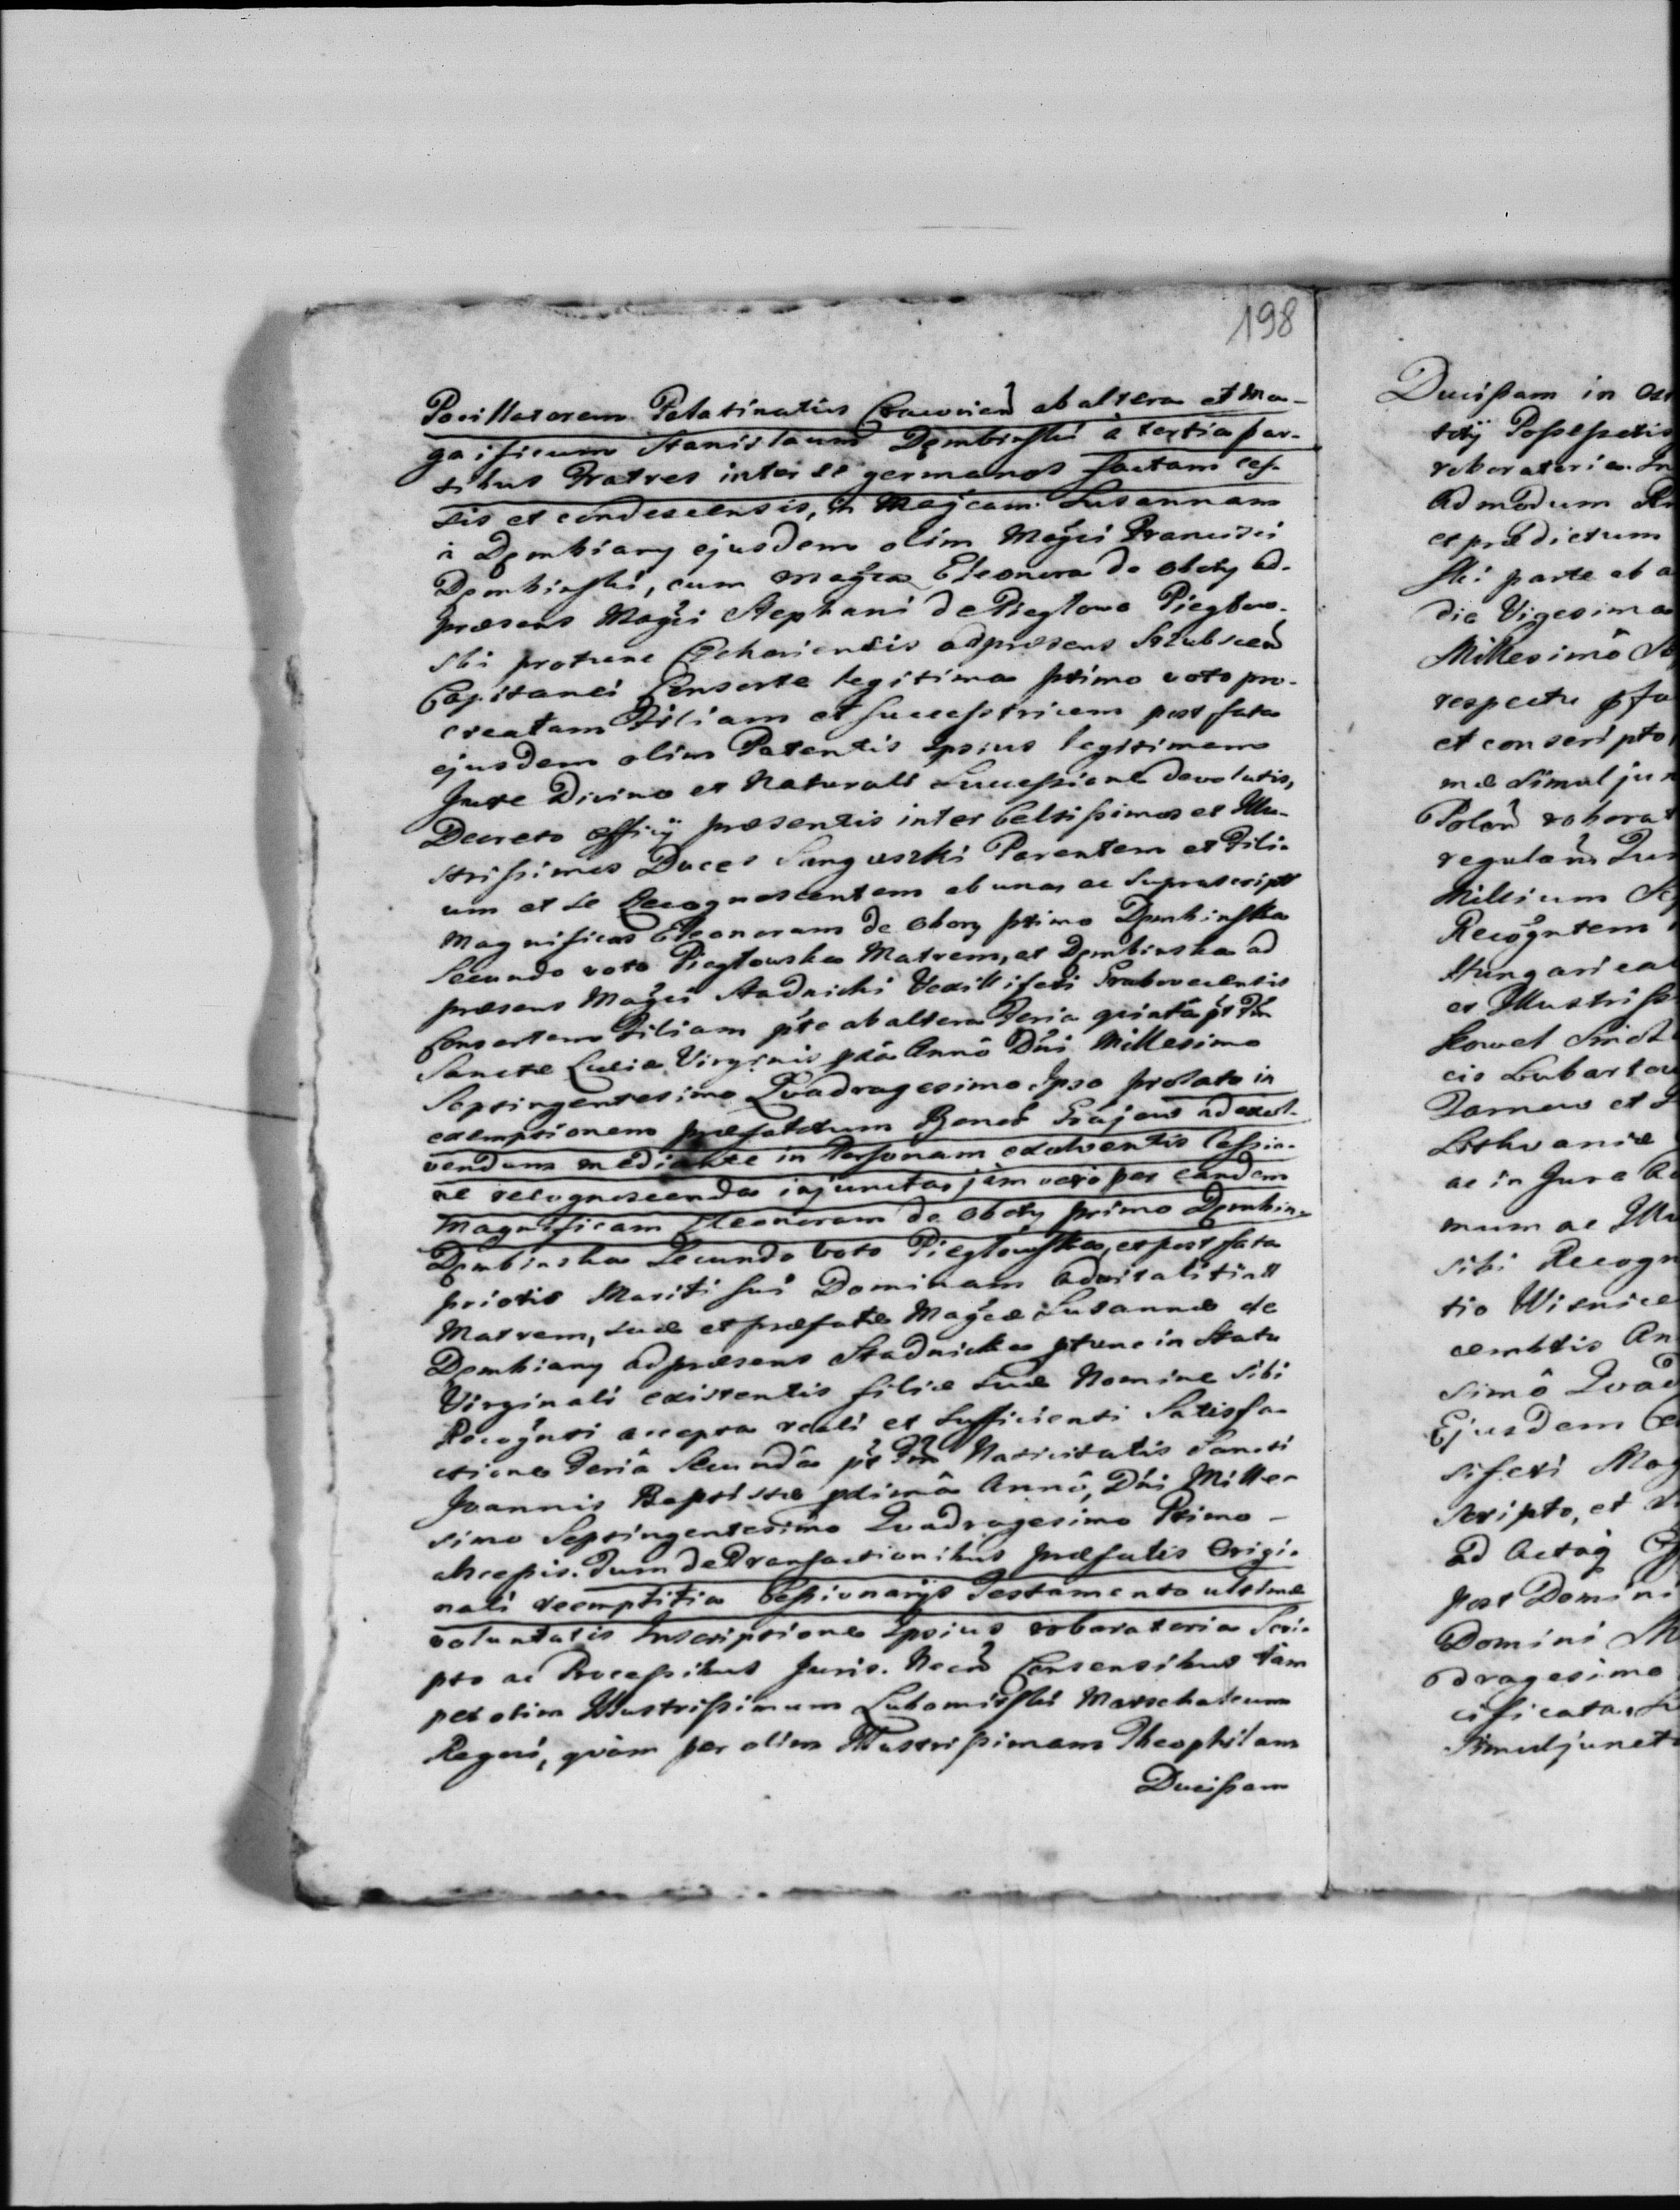 198
Pocillatorem Palatinatûs Cracovien̄ ab altera et Ma-
gnificum Stanislaum Dęmbinski à tertia par-
tibus Fratres inter se germanos factam ces-
sis et condescensis, in Magcam Susannam
à Dęmbiany ejusdem olim Magci Francisci
Dęmbinski, cum Magca Eleonora de Obory ad-
præsens Magci Stephani de Piegłowo Piegłow-
ski protunc adpræsens
Capitanei Consorte legitima primo voto pro-
creatam Filiam et Successtricem post fata
ejusdem olim Parentis Ipsius legitimam
Jure Divino et Naturali Successione devolutis,
Decreto Officij præsentis inter Celsissimos et Illu-
strissimos Duces Sanguszki Parentem et Fili-
um et Se Recognoscentem ab una ac Suprascript
Magnificas Eleonoram de Obory primo Dęmbinska
Secundo voto Piegłowska Matrem, et Dęmbinska ad
præsens Magci Stadnicki Vexilliferi Grabovecensis
Consortem Filiam pte ab altera Feria quinta pt Fm
Sanctæ Luciæ Virginis pxa Annô Dni Millesimo
Septingentesimo Quadragesimo Ipso prolato in
exemptionem præfatorum Bonor ad exol-
vendam mediante in Personam exolventis Cessio-
ne recognoscenda injunctas jam vero per eandem
Magnificam Eleonoram de Obory primo Dęmbin-
Dęmbinska Secundo voto Piegłowska, et post fata
prioris Mariti sui Dominam advitalitiall
Matrem, suæ et præfatæ Magcæ Susannæ de
Dęmbiany adpræsens Stadnicka ptunc in Statu
Virginali existentis filiæ suæ Nomine Sibi
Recognti accepta reali et Sufficienti Satisfa-
ctione Feriâ Secundâ pt Fm Nativitatis Sancti
Joannis Baptistæ pximâ Annô, Dni Mille-
simo Septingentesimo Quadragesimo Primo -
abcessis. Tum de Transactionibus præfatis Origi-
nali reemptitia Cessionarijs Testamento ultimæ
voluntatis Inscriptione Ipsius roboratoria Scri-
pto ac Processibus Juris. Necn̄ Consensibus tàm
per olim Illustrissimum Lubomirski Marschalcum
Regni, quàm per olim Illustrissimam Theophilam
Ducissam
Ducissam in
Possessoris
roboratoria. In
Admodum
et prædictum
ski parte ab a
die Vigesima
Millesimô
respectu
et conscripto
mæ simul jun
Polon̄ roborat
regulan̄
Millium
Recogntem
Hungarica
et Illustriss
Kowel
cis Lubartow
Tarnow et
Lithvaniæ
ac in Jure
mum ac Illu
sibi Recogn
tio Wisnice
cembris An
simô Quad
Ejusdem Ce
siferi Mag
Scripto, et
ad Actaq
post Domini
Domini
dragesimo
cificata.
Simuljuncta